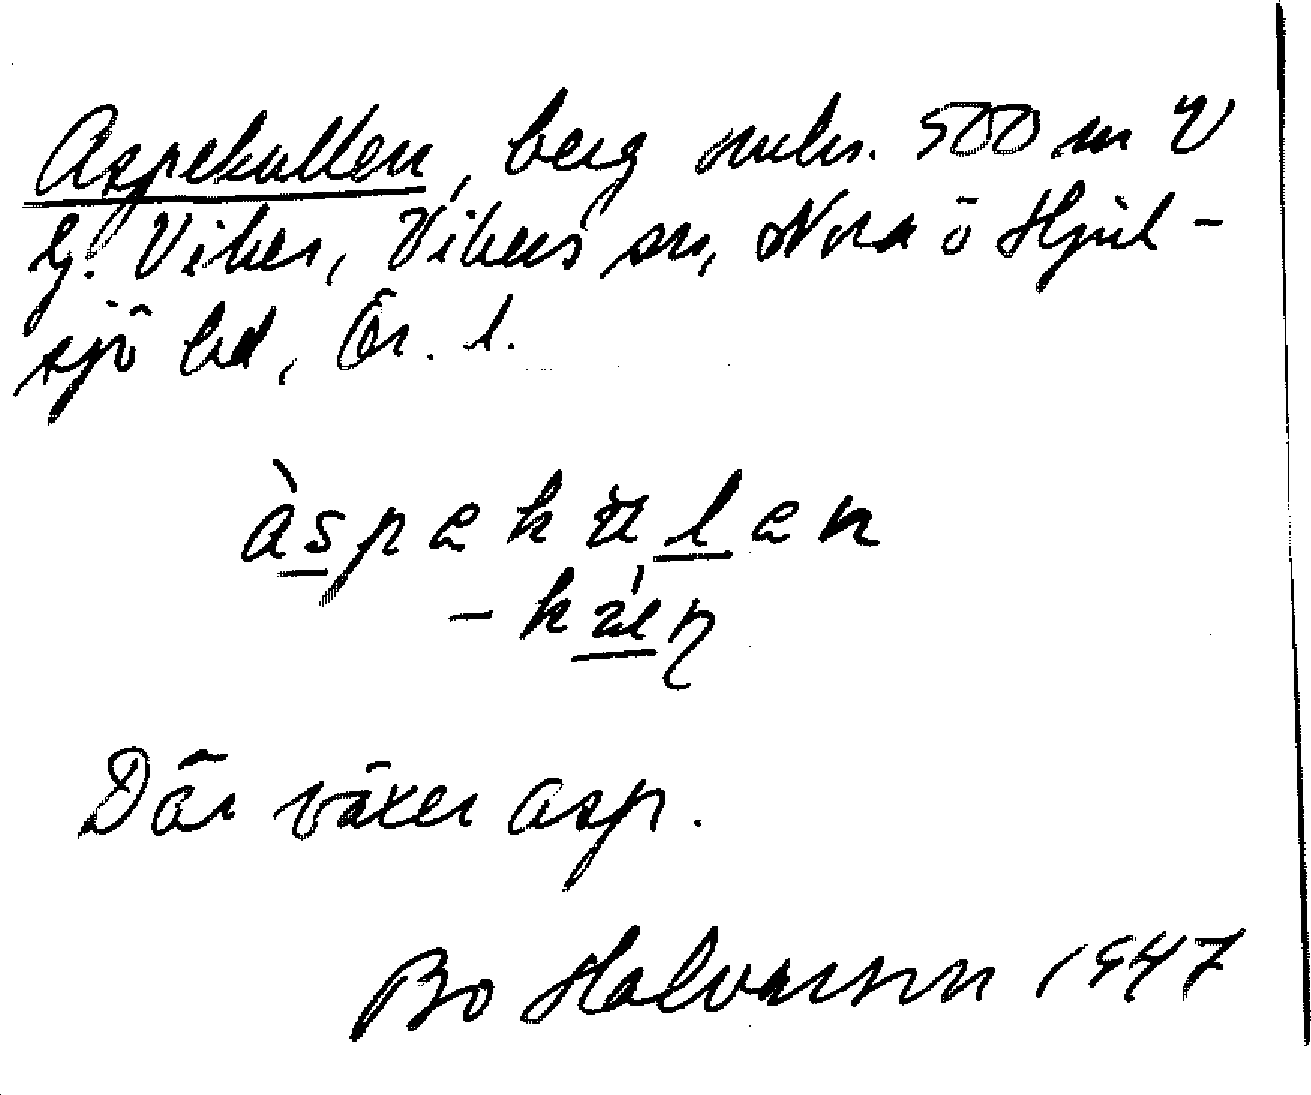 Aspekullen, berg omkr. 500 m V
lj. Viker, Vikers sn, Nora o Hjul-
sjö bd, Ör. l.
àspekulen
-kuln
Där växer asp.
Bo Halvarson 1947